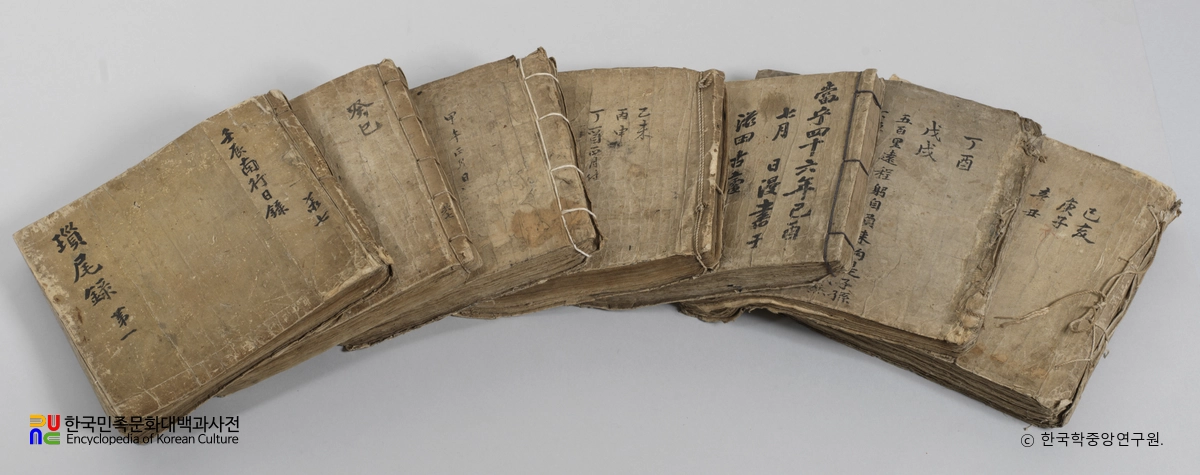 瑣尾錄 第一
壬辰南行日錄
第七
癸巳
甲午
乙未
丙申
當宁四十六年己酉
七月 日漫書于
滋田古蘆
丁酉
戊戌
五百里遠程躬自負來
己亥
庚子
辛丑
한국민족문화대백과사전
Encyclopedia of Korean Culture
© 한국학중앙연구원.